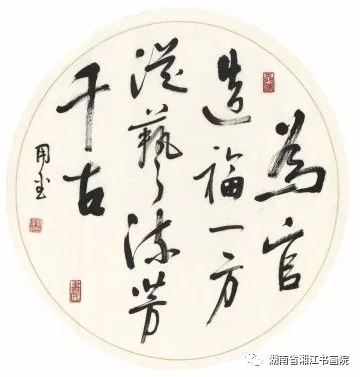 為官
造福一方
從藝流芳
千古
湖南省湘江书画院